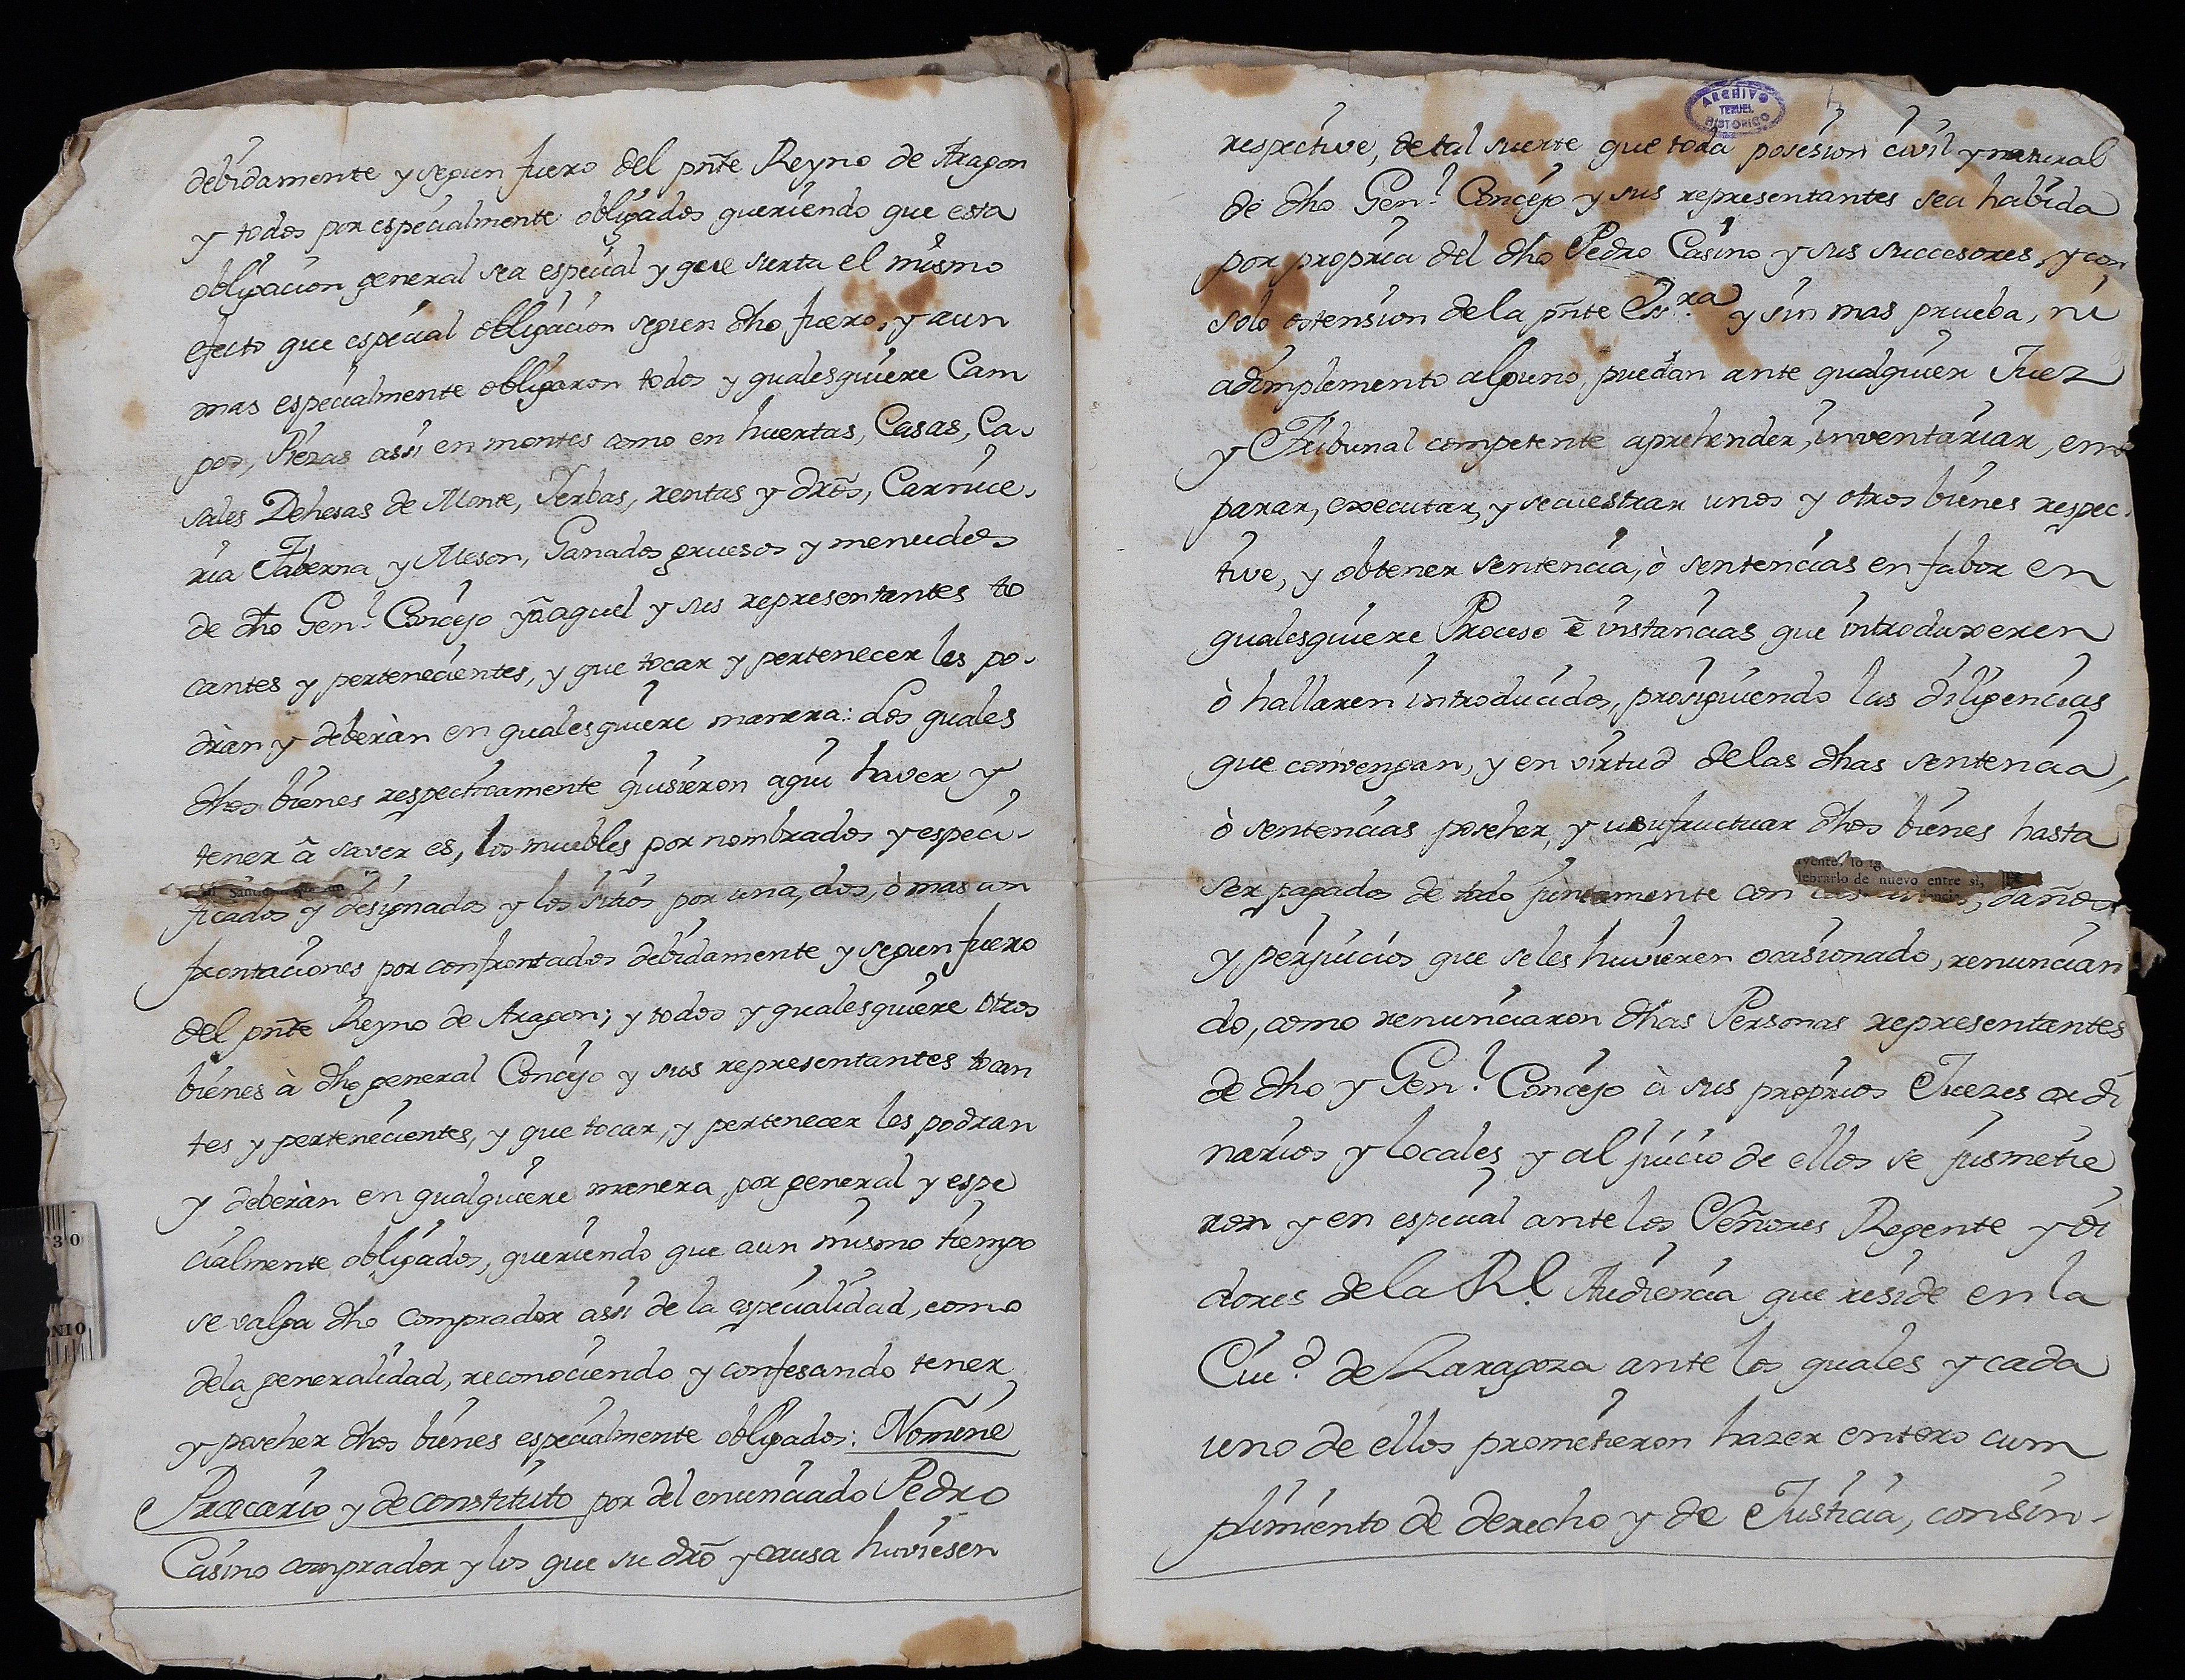 debidamente y segun fuero del pñte Reyno de Aragon
y todos por especialmente obligados queriendo que esta
obligacion general sea especial y que surta el mismo
efecto que especial obligacion segun dho fuero, y aun
mas especialmente obligaron todos y qualesquiere Cam
pos, Piezas assi en montes como en huertas, Casas, Ca-
sales Dehesas de Monte, Yerbas, rentas y drõs, Carnice-
ria Taberna y Meson, Ganados gruesos y menudos
de dho Gen.l Concejo ỹa aquel y sus representantes to
cantes y pertenecientes, y que tocar y pertenecer les po-
dràn y deberàn en qualesquiere manera: Los quales
dhos bienes respectivamente quisieron aqui haver y
tener â saver es, los muebles por nombrados y especi-
ficados y designados y los sitios por una, dos, ò mas con
frontaciones por confrontados debidamente y segun fuero
del pñte Reyno de Aragon; y todos y qualesquiere otros
bienes à dho general Concejo y sus representantes tocan
tes y pertenecientes, y que tocar, y pertenecer les podran
y deberàn en qualquiere manera, por general y espe
cialmente obligados, queriendo que aun mismo tiempo
se valga dho comprador assi de la especialidad, como
dela generalidad, reconociendo y confesando tener
y poseher dhos bienes especialmente obligados: Nomine
Precario y de constituto por del enunciado Pedro
Casino comprador y los que su drõ y causa huviesen
ARCHIVO
TERUEL
HISTORICO
respective, de tal suerte que toda posesion civil y natural
de dho Gen.l Concejo y sus representantes sea habida
por propria del dho Pedro Casino y sus succesores, y con
solo ostension dela pñte Ess.ra y sin mas prueba, ni
adimplemento alguno, puedan ante qualquier Juez
y Tribunal competente aprehender, inventariar, em
parar, executar, y secuestrar unos y otros bienes respec-
tive, y obtener sentencia, ò sentencias en fabor en
qualesquiere Proceso ê instancias que introduxeren
ò hallaren introducidos, prosiguiendo las diligencias
que convengan, y en virtud delas dhas sentencia,
ò sentencias poseher, y usufructuar dhos bienes hasta
lebrarlo de nuevo entre sí,
ser pagados de todo juntamente con daños
y perjuicios que seles huvieren ocasionado, renuncian
do, como renunciaron dhas Personas representantes
de dho y Gen.l Concejo à sus proprios Juezes ordi
narios y locales y al juicio de ellos se jusmetie
ron y en especial ante los Señores Regente y oi
dores dela Rl. Audiencia que reside en la
Ciu.d de Zaragoza ante los quales y cada
uno de ellos prometieron hazer entero cum
plimiento de derecho y de Justicia, consin-